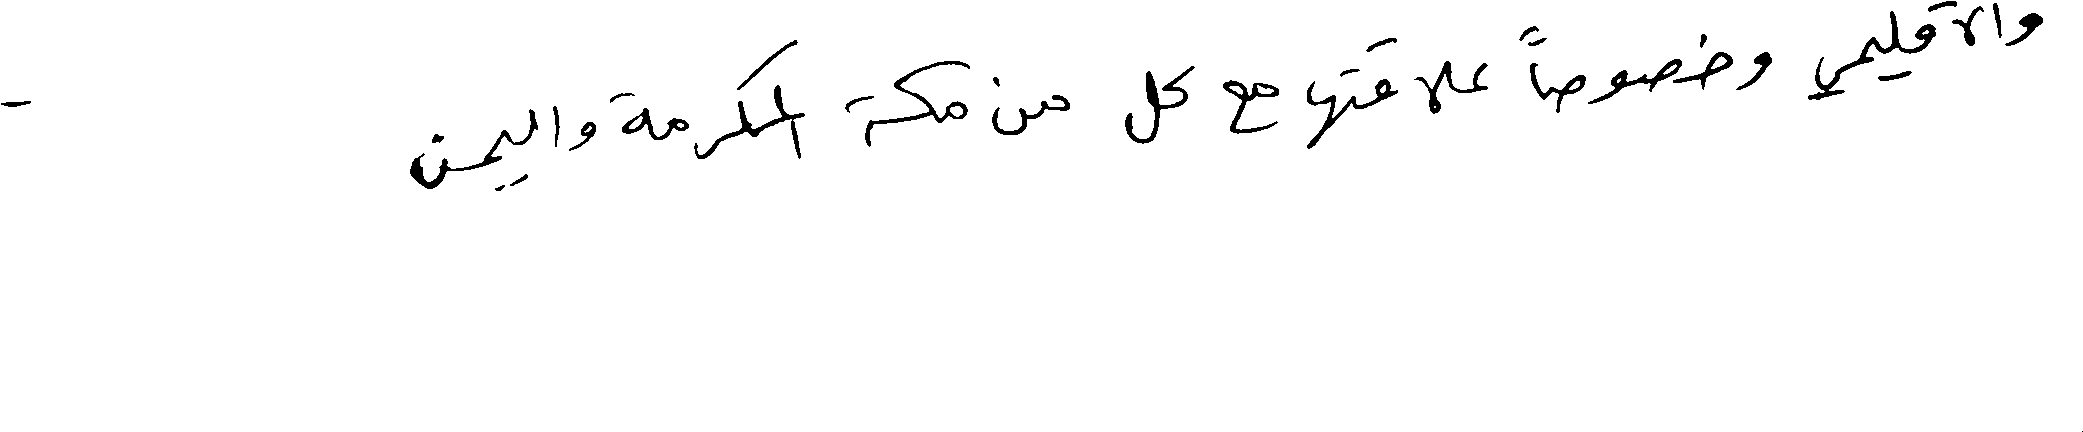 والاقليمي وخصوصاً علاقتها مع كل من مكة المكرمة واليمن